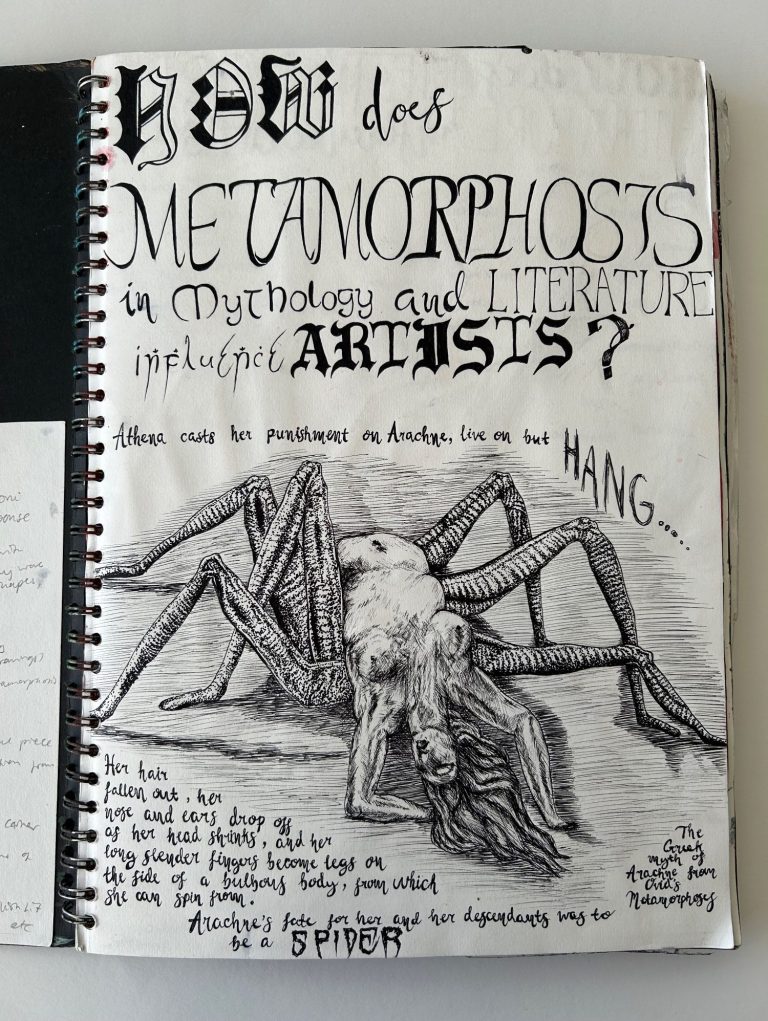 HOW does
METAMORPHOSIS
in Mythology and LITERATURE
influence ARTISTS?
Athena casts her punishment on Arachne, live on but HANG.....
Her hair
fallen out, her
nose and ears drop off
as her head shrinks, and her
long slender fingers become legs on
the side of a bulbous body, from which
she can spin from.
The
Greek
myth of
Arachne from
Ovid's
Metamorphoses
Arachne's fate for her and her descendants was to
be a SPIDER